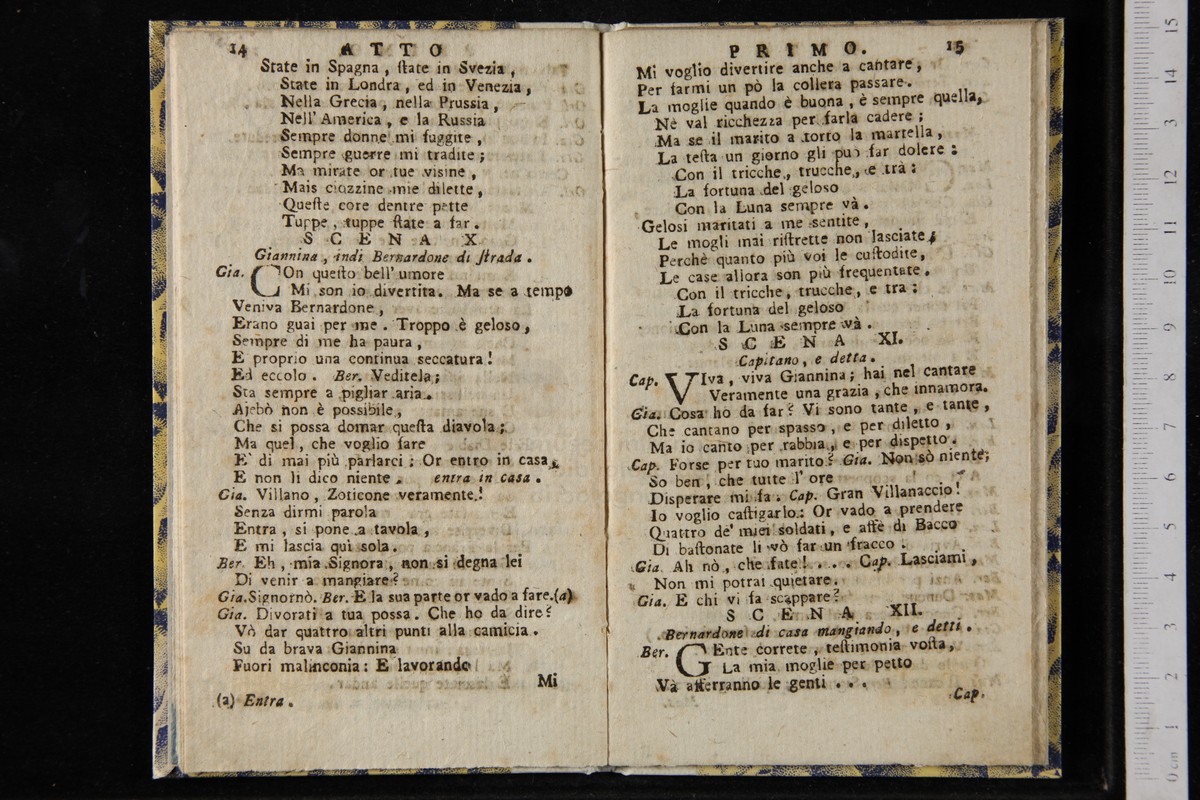 14 ATTO
State in Spagna, ſtate in Svezia,
State in Londra, ed in Venezia,
Nella Grecia, nella Pruſſia,
Nell' America, e la Ruſſia
Sempre donne mi fuggite,
Sempre guerre mi tradite;
Ma mirate or tue viſine,
Mais ciozzine mie dilette,
Queſte core dentre pette
Tuppe, tuppe ſtate a far.
SCENA X
Giannina, indi Bernardone di ſtrada.
Gia. COn queſto bell' umore
Mi son io divertita. Ma se a tempo
Veniva Bernardone,
Erano guai per me. Troppo è geloso,
Sempre di me ha paura,
E proprio una continua seccatura!
Ed eccolo. Ber. Veditela;
Sta sempre a pigliar aria.
Ajebò non è possibile,
Che si possa domar queſta diavola;
Ma quel, che voglio fare
E' di mai più parlarci; Or entro in casa,
E non li dico niente. entra in casa.
Gia. Villano, Zoticone veramente!
Senza dirmi parola
Entra, si pone a tavola,
E mi lascia quì sola.
Ber Eh, mia Signora, non si degna lei
Di venir a mangiare?
Gia. Signornò. Ber. E la sua parte or vado a fare.(a)
Gia. Divorati a tua possa. Che ho da dire?
Vò dar quattro altri punti alla camicia.
Su da brava Giannina
Fuori malinconia: E lavorando
Mi
(a) Entra.
PRIMO. 15
Mi voglio divertire anche a cantare,
Per farmi un pò la collera passare.
La moglie quando è buona, è sempre quella,
Nè val ricchezza per farla cadere;
Ma se il marito a torto la martella,
La teſta un giorno gli può far dolere:
Con il tricche, trucche, e trà:
La fortuna del geloso
Con la Luna sempre và.
Gelosi maritati a me sentite,
Le mogli mai riſtrette non lasciate;
Perchè quanto più voi le cuſtodite,
Le case allora son più frequentate.
Con il tricche, trucche, e tra:
La fortuna del geloso
Con la Luna sempre và.
SCENA XI.
Capitano, e detta.
Cap. VIva, viva Giannina; hai nel cantare
Veramente una grazia, che innamora.
Gia. Cosa ho da far? Vi sono tante, e tante,
Che cantano per spasso, e per diletto,
Ma io canto per rabbia, e per dispetto.
Cap. Forse per tuo marito? Gia. Non sò niente;
So ben, che tutte l' ore
Disperare mi fa. Cap. Gran Villanaccio!
Io voglio caſtigarlo: Or vado a prendere
Quattro de' miei soldati, e affè di Bacco
Di baſtonate li vò far un fracco.
Gia. Ah nò, che fate!... Cap. Lasciami,
Non mi potrai quietare.
Gia. E chi vi fa scappare?
SCENA XII.
Bernardone di casa mangiando, e detti.
Ber. GEnte correte, teſtimonia voſta,
La mia moglie per petto
Và afferranno le genti...
Cap.